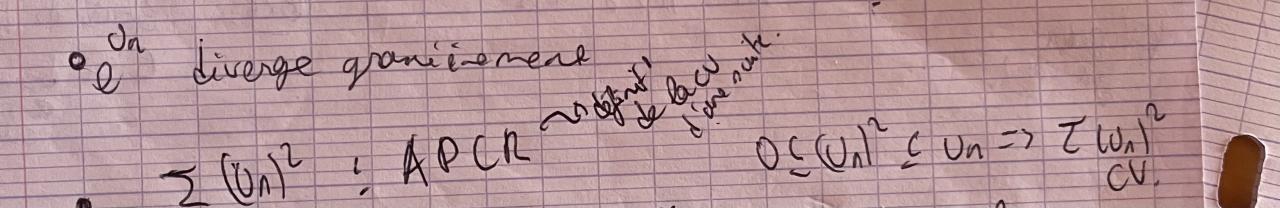 • e^{Un} diverge grossièrement
Σ (Un)² : APCR ⇝ définit°
de la CV
d'une suite.
0 ≤ (Un)² ≤ Un => Σ (Un)²
CV.